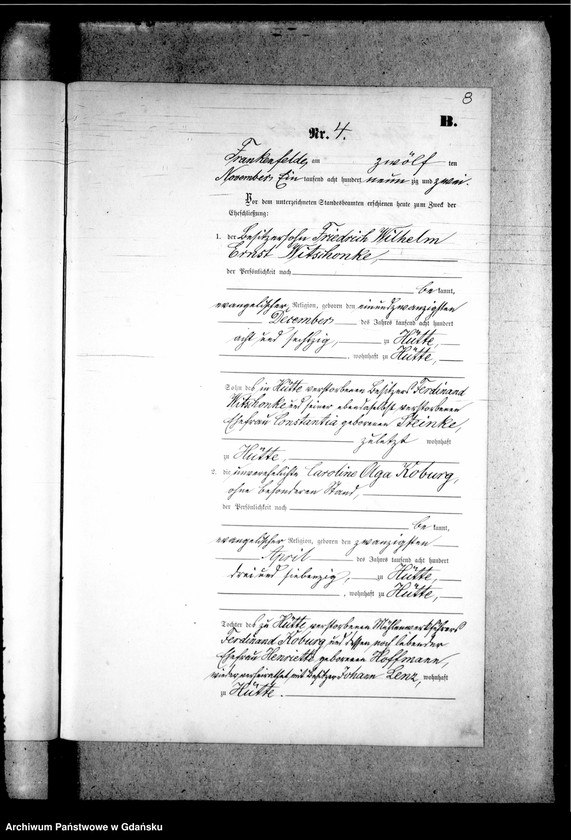 8
B.
Nr. 4.
Frankenfelde, am zwölf ten
November Ein tausend acht hundert neun zig und zwei.
Vor dem unterzeichneten Standesbeamten erschienen heute zum Zweck der
Eheschließung:
1. der Besitzersohn Friedrich Wilhelm
Ernst Witschonke,
der Persönlichkeit nach
be kannt,
evangelischer Religion, geboren den einundzwanzigsten
December des Jahres tausend acht hundert
acht und sechzig, zu Hütte,
, wohnhaft zu Hütte,
Sohn des in Hütte verstorbenen Besitzers Ferdinand
Witschonke und seiner ebendaselbst verstorbenen
Ehefrau Constantia geborenen Steinke,
zuletzt wohnhaft
zu Hütte,
2. die unverehelichte Caroline Olga Koburg,
ohne besonderen Stand,
der Persönlichkeit nach
be kannt,
evangelischer Religion, geboren den zwanzigsten
April des Jahres tausend acht hundert
drei und siebenzig, zu Hütte,
, wohnhaft zu Hütte,
Tochter des zu Hütte verstorbenen Mühlenwerkführers
Ferdinand Koburg und dessen noch lebender
Ehefrau Henriette geborenen Hoffmann,
wieder verheirathet mit Besitzer Johann Lenz, wohnhaft
zu Hütte.
Archiwum Państwowe w Gdańsku